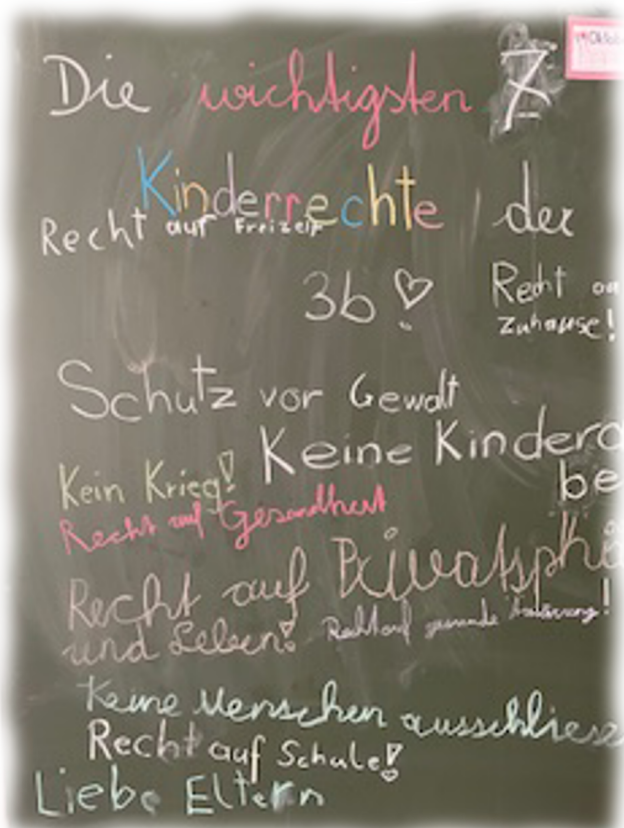 Die wichtigsten 7
Kinderrechte der
Recht auf Freizeit
3b
Recht
Zuhause!
Schutz vor Gewalt
Keine Kindera
be
Kein Krieg!
Recht auf Gesundheit
Recht auf Privatsphä
und Leben!
Recht auf gesunde Ernährung!
Keine Menschen ausschliese
Recht auf Schule!
Liebe Eltern